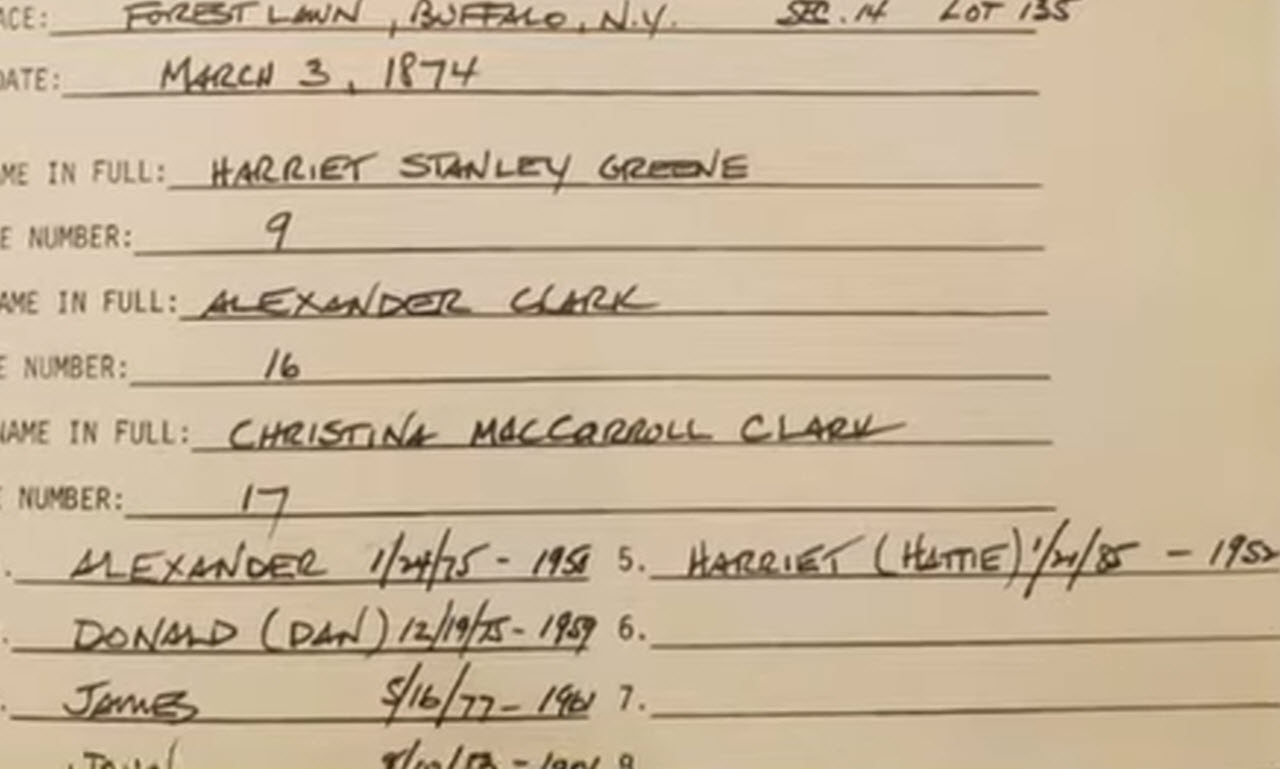 ACE: FOREST LAWN, BUFFALO, N.Y. SEC. 14 LOT 135
DATE: MARCH 3, 1874
ME IN FULL: HARRIET STANLEY GREENE
E NUMBER: 9
AME IN FULL: ALEXANDER CLARK
E NUMBER: 16
NAME IN FULL: CHRISTINA MACCORROLL CLARK
NUMBER: 17
. ALEXANDER 1/24/75 - 1958 5. HARRIET (HATTIE) 1/21/85 - 1952
. DONALD (DAN) 12/19/75 - 1959 6.
. JAMES 5/16/77 - 1961 7.
JOHN